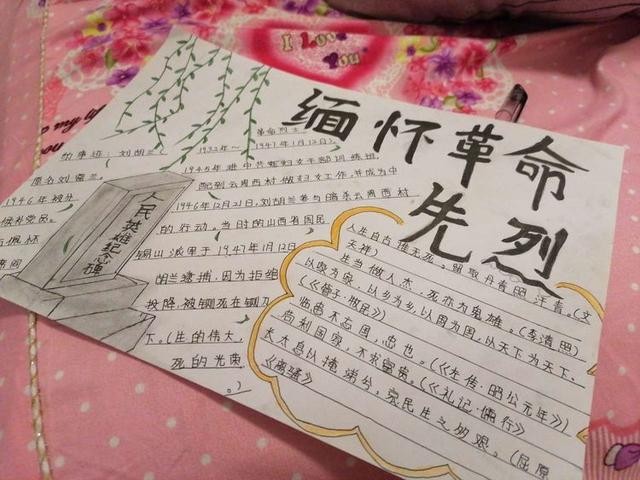 I Love You
缅怀革命
先烈
革命烈士
的事迹：刘胡兰（1932年～1947年1月12日），
原名刘富兰。1945年进中共妇女干部训练班，
1946年被分配到云周西村做妇女工作，并成为中
候补党员。1946年12月21日，刘胡兰参与暗杀云周西村
的行动。当时的山西省国民
于1947年1月12日
胡兰逮捕，因为拒绝
投降，被铡死在铡刀
下。（生的伟大，
死的光荣
。）
人民英雄纪念碑
人生自古谁无死。留取丹青照汗青。（文
天祥）生当做人杰，死亦为鬼雄。（李清照）
以家为家，以乡为乡，以国为国，以天下为天下。
（《管子·牧民》）
临患不忘国，忠也。（《左传·昭公元年》）
苟利国家，不求富贵。（《礼记·儒行》）
长太息以掩涕兮，哀民生之多艰。（屈原
《离骚》）